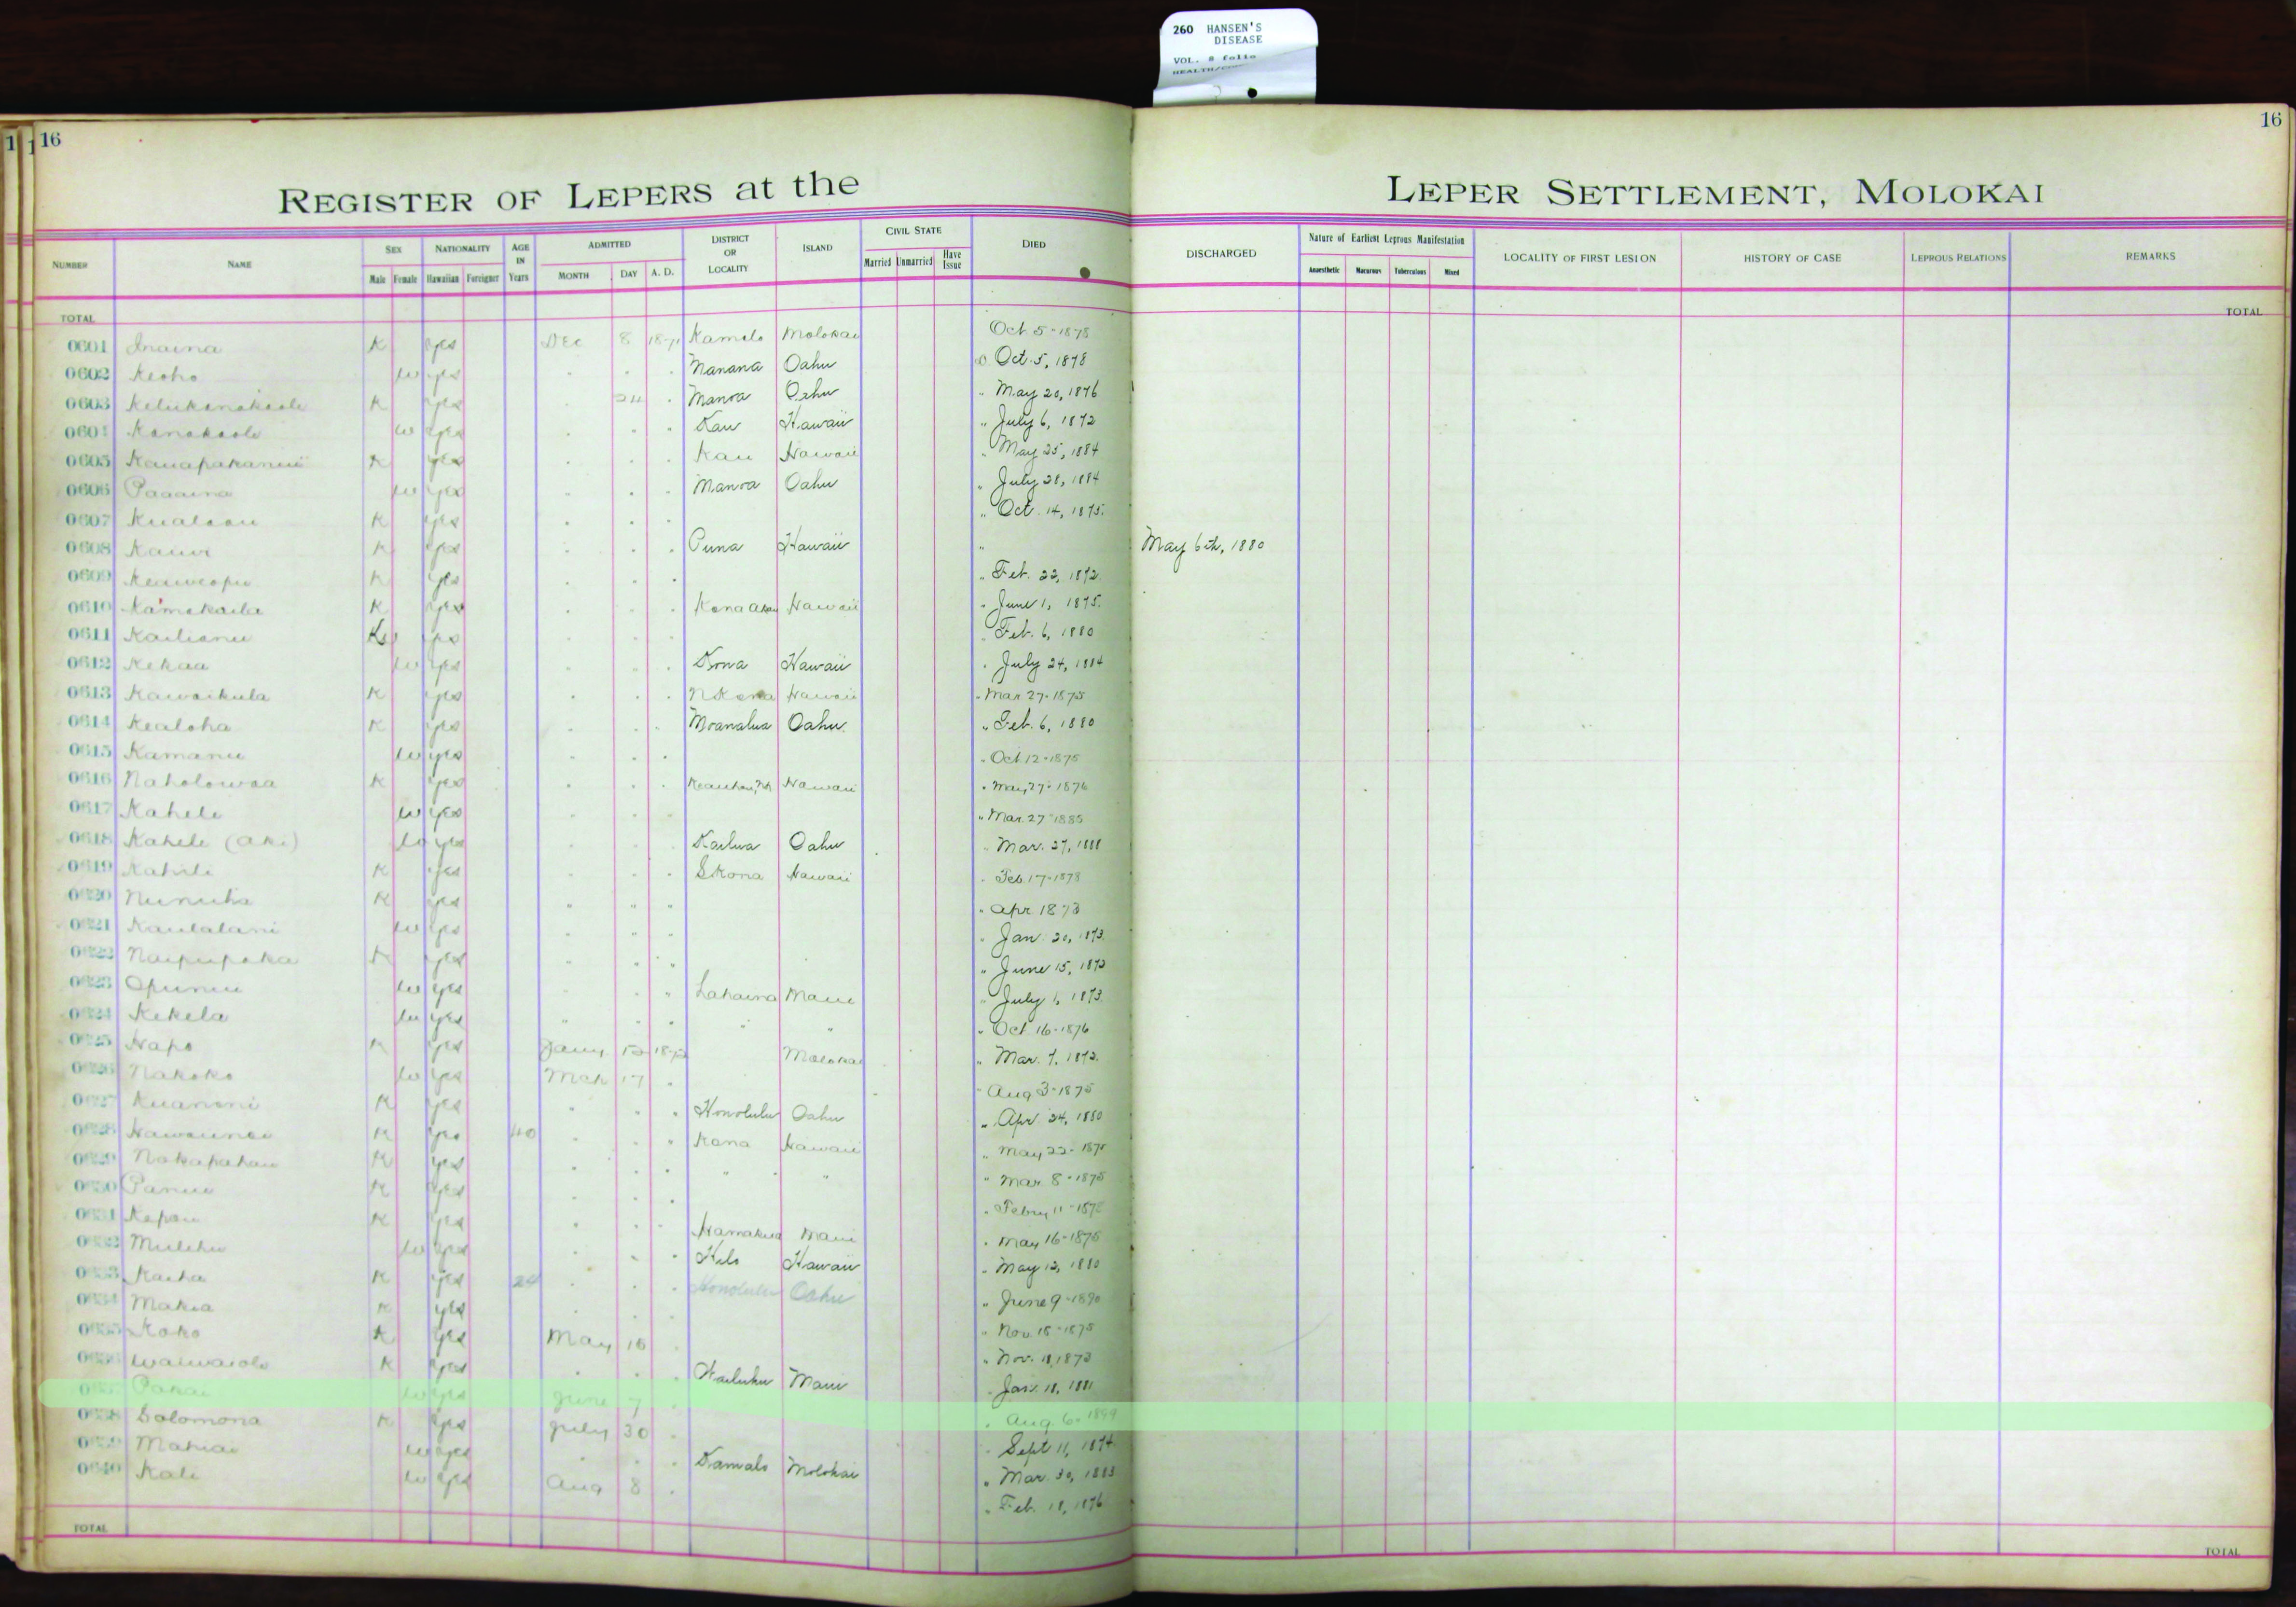 260 HANSEN'S
DISEASE
VOL. 8 folio
16
16
REGISTER OF LEPERS at the
LEPER SETTLEMENT, MOLOKAI
NUMBER NAME SEX Male Female NATIONALITY Hawaiian Foreigner AGE IN Years ADMITTED MONTH DAY A. D. DISTRICT OR LOCALITY ISLAND CIVIL STATE Married Unmarried Have Issue DIED
DISCHARGED Nature of Earliest Leprous Manifestation Anaesthetic Macurous Tuberculous Mixed LOCALITY OF FIRST LESION HISTORY OF CASE LEPROUS RELATIONS REMARKS
TOTAL
TOTAL
0601 Inaina K yes Dec 8 Kamalo Molokai Oct 5-1878
0602 Keoho w yes Manana Oahu Oct. 5, 1878
0603 K yes 24 Manoa Oahu " May 20, 1876
0604 Kanakaole w yes Kau Hawaii " July 6, 1872
0605 K yes Kau Hawaii " May 25, 1884
0606 w yes Manoa Oahu " July 28, 1884
0607 K yes " Oct. 14, 1875
0608 Kauwi K yes Puna Hawaii " May 6th, 1880
0609 Keaweopu K yes " Feb. 22, 1872
0610 Kamakaila K yes Kona Akau Hawaii " June 1, 1875
0611 Kailianu yes " Feb. 6, 1880
0612 Kekaa w yes Kona Hawaii " July 24, 1884
0613 Kawaikula K yes N Kona Hawaii " Mar 27-1875
0614 Kealoha K yes Moanalua Oahu " Feb. 6, 1880
0615 Kamanu w yes " Oct 12-1875
0616 Naholowaa K yes Hawaii " May 27-1876
0617 Kahele w yes " Mar. 27-1885
0618 Kahele (Aki) w yes Kailua Oahu Mar. 27, 1888
0619 Kahili K yes S Kona Hawaii Feb. 17-1878
0620 K yes " " " " Apr 1873
0621 Kaulalani w yes " Jan. 20, 1873
0622 Naipupaka K yes " June 15, 1873
0623 Opunui w yes Lahaina Maui " July 1, 1873
0624 Kekela w yes " " " Oct 16-1876
Hapo K yes Jany 1872 Molokai " Mar. 7, 1872
Nakoko w yes Mch 17 " Aug 3-1875
Kuanoni K yes Honolulu Oahu " Apr. 24, 1880
K yes 40 Kona Hawaii " May 22-
Nakapahau K yes " " " Mar 8-1875
Panui K yes " Febry 11-
Kapau K yes Hamakua Maui " May 16-1875
Mulehu w yes Hilo Hawaii " May 12, 1880
Kaiha K yes 24 Honolulu Oahu " June 9-1890
Makia K yes " Nov. 15-1875
Koko K yes May 15 " Nov. 11, 1873
Waiwaiole K yes Wailuku Maui Jan. 18, 1881
Pahai w yes June 7 Aug. 6-1899
Solomona K yes July 30 Sept 11, 1874
Mahiai w yes Kamalo Molokai " Mar. 30, 1883
0640 Kali w yes Aug 8 " Feb. 18, 1876
TOTAL
TOTAL